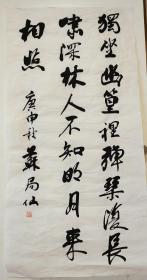 獨坐幽篁裡彈琴復長
嘯深林人不知明月來
相照
庚申秋蘇局仙